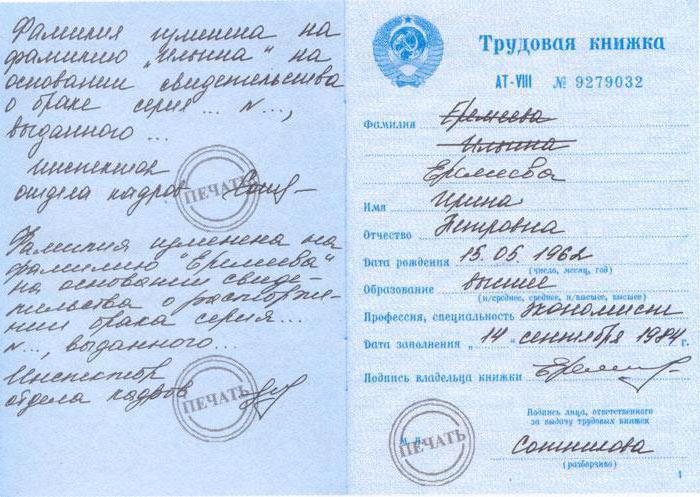 Фамилия изменена на
фамилию „Ильина" на
основании свидетельства
о браке серия... N...,
выданного...
Инспектор
отдела кадров
ПЕЧАТЬ
Фамилия изменена на
фамилию "Еремеева"
на основании свиде-
тельства о расторже-
нии брака серия...
N..., выданного...
Инспектор
отдела кадров
ПЕЧАТЬ
Трудовая книжка
АТ-VIII № 9279032
Фамилия Еремеева
Ильина
Еремеева
Имя Ирина
Отчество Петровна
Дата рождения 15.05.1962
(число, месяц, год)
Образование высшее
(н/среднее, среднее, н/высшее, высшее)
Профессия, специальность экономист
Дата заполнения „14" сентября 1984 г.
Подпись владельца книжки
Подпись лица, ответственного
за выдачу трудовых книжек
М. П.
ПЕЧАТЬ
(разборчиво)
1